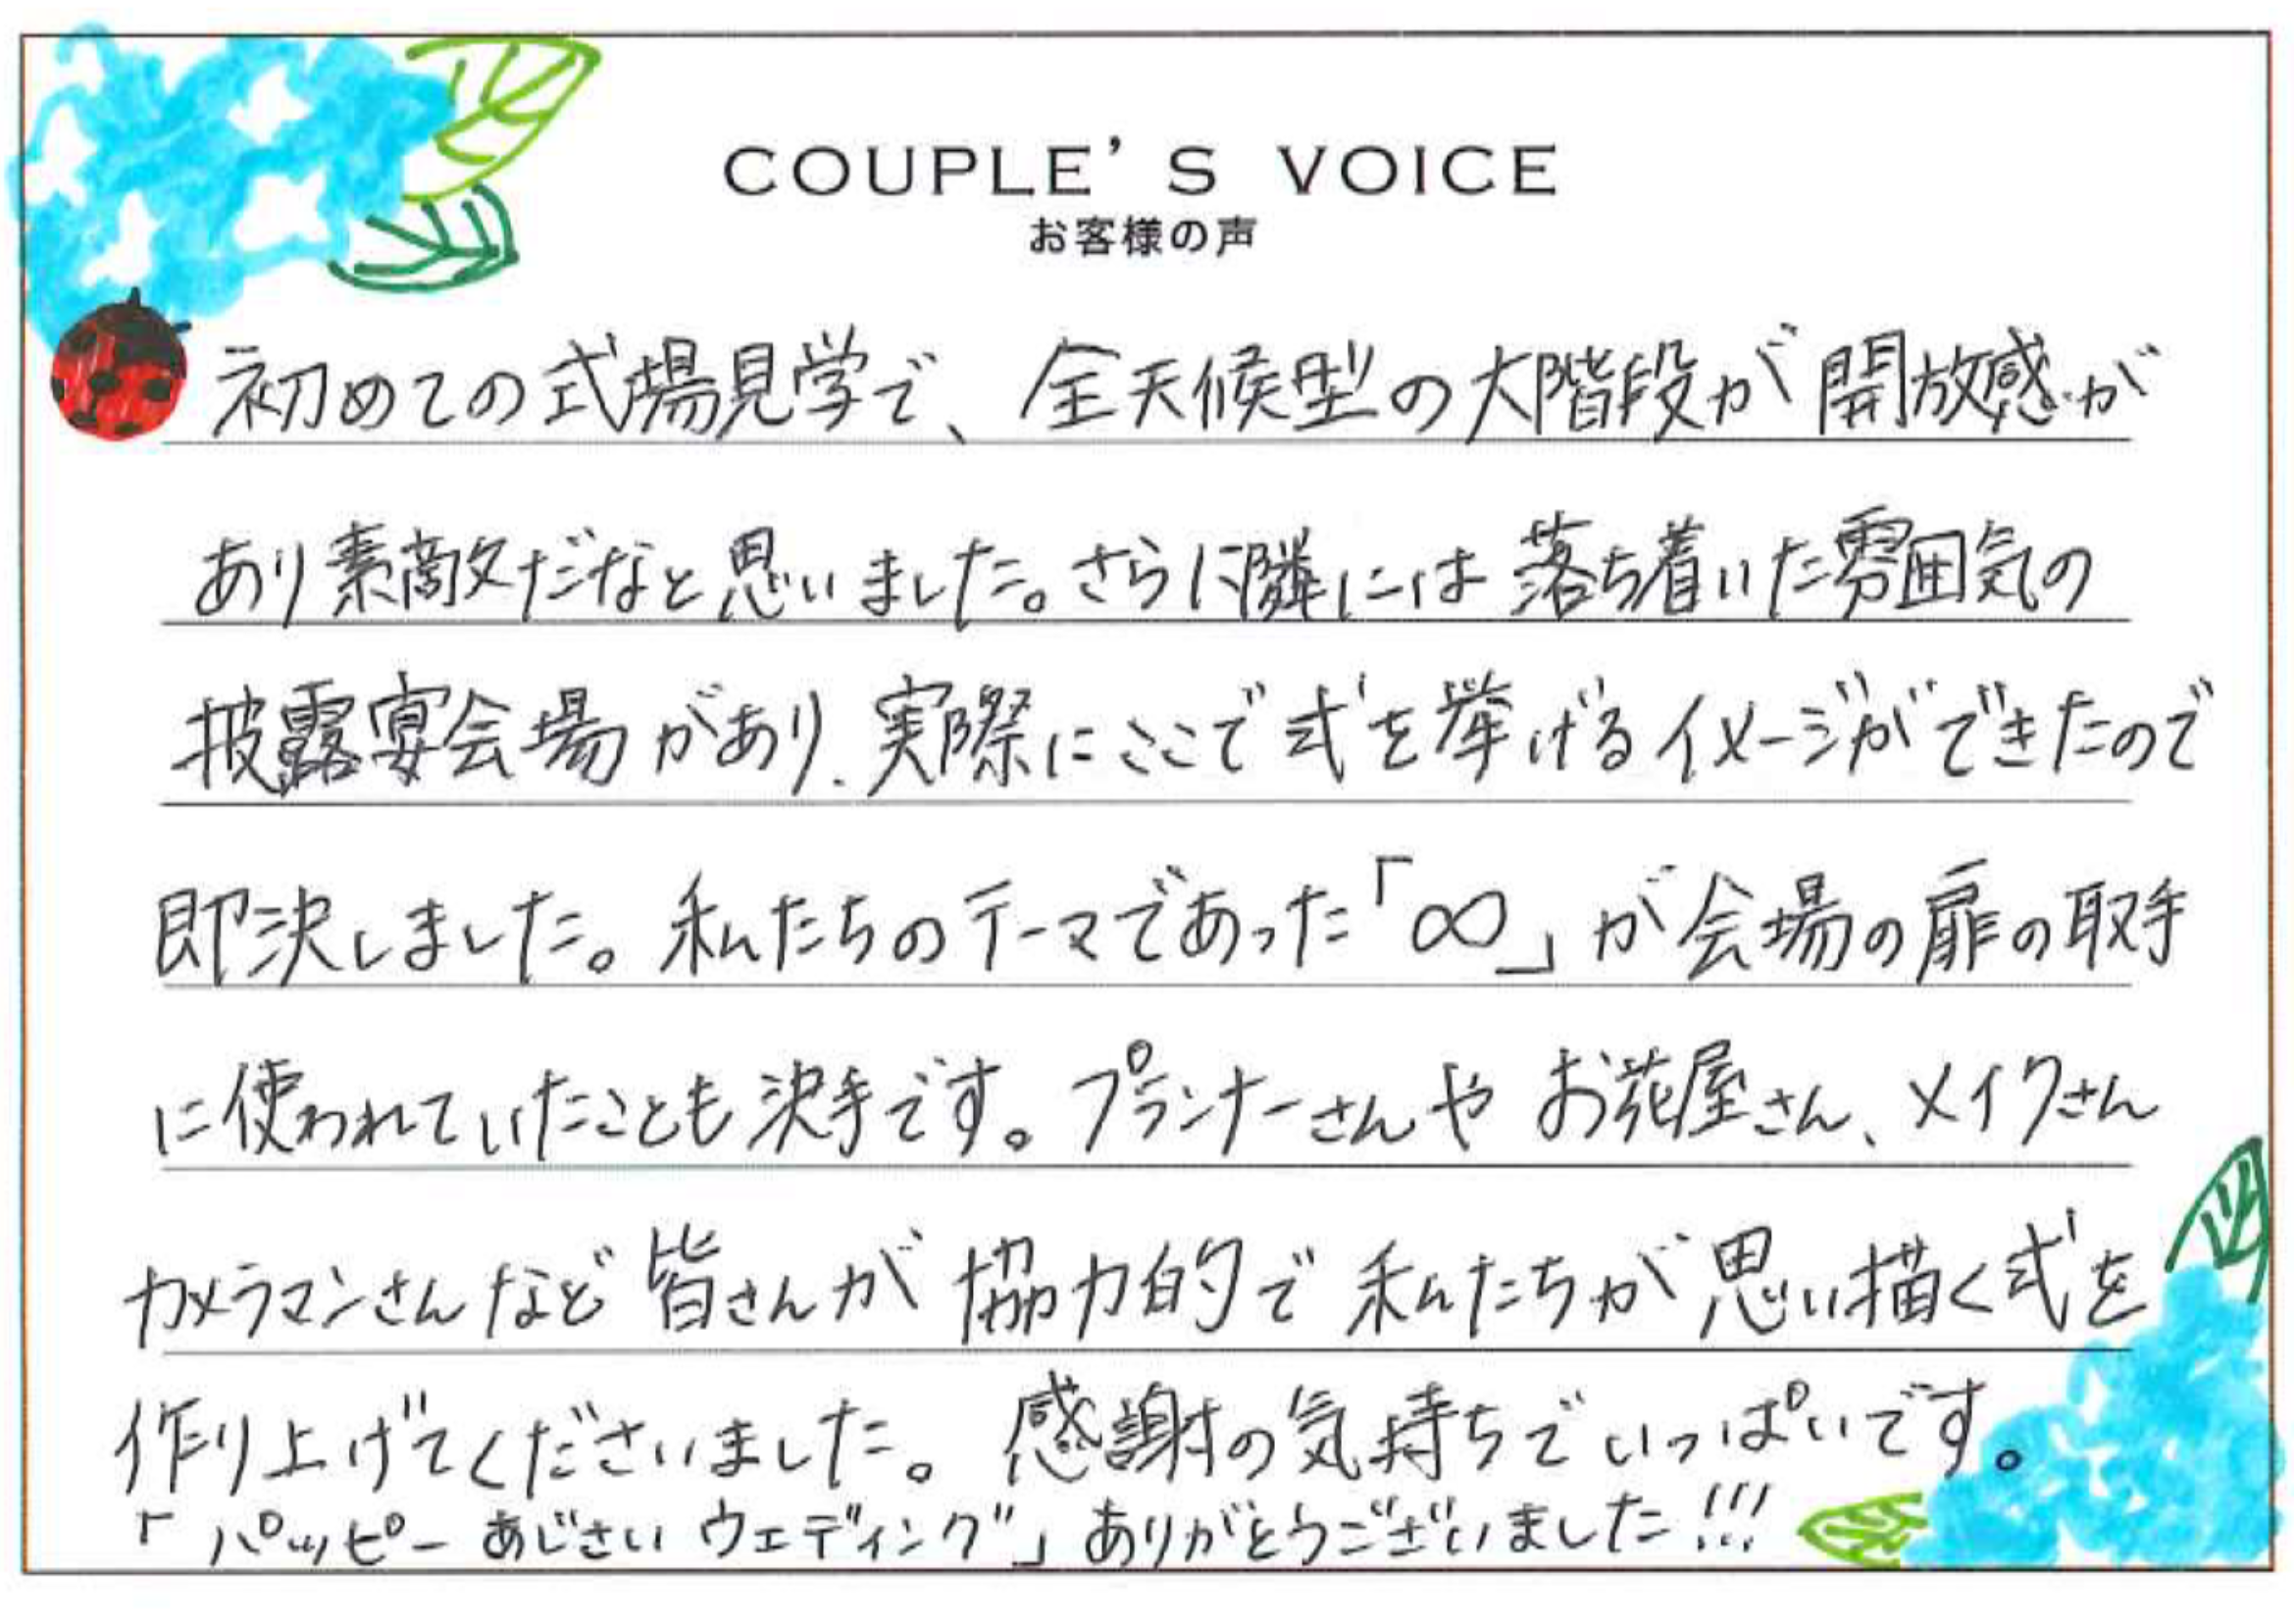 COUPLE'S VOICE
お客様の声
初めての式場見学で、全天候型の大階段が開放感が
あり素敵だなと思いました。さらに隣には落ち着いた雰囲気の
披露宴会場があり、実際にここで式を挙げるイメージができたので
即決しました。私たちのテーマであった「∞」が会場の扉の取手
に使われていたことも決手です。プランナーさんや お花屋さん、メイクさん
カメラマンさんなど皆さんが協力的で私たちが思い描く式を
作り上げてくださいました。感謝の気持ちでいっぱいです。
「パッピー あじさい ウェディング」ありがとうございました!!!